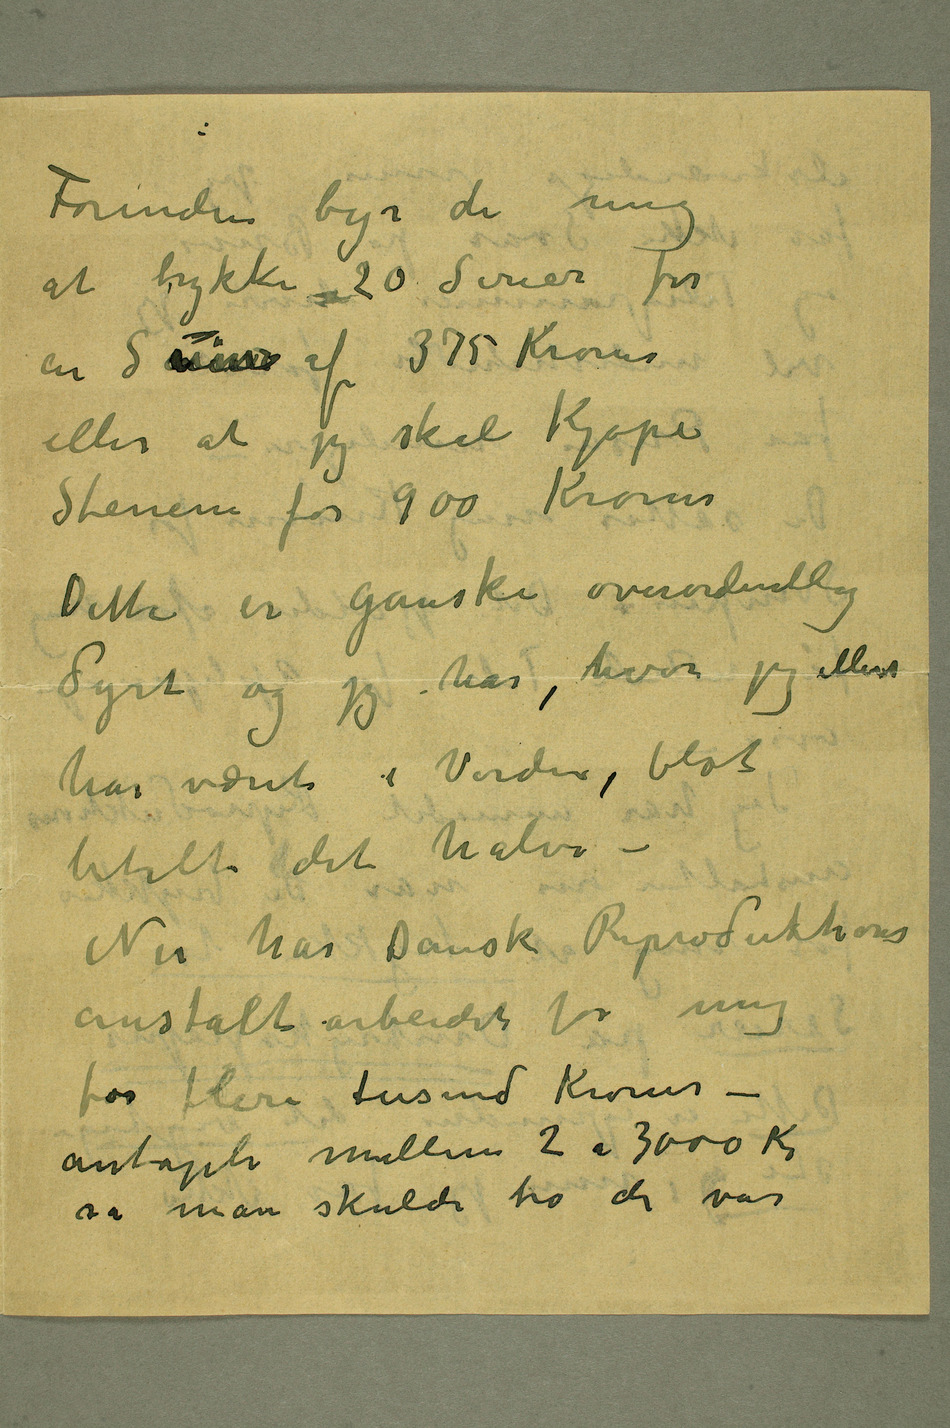 Forinden byr de mig
at trykke 20 Serier for
en Sum af 375 Kroner
eller at jeg skal Kjøpe
Stenene for 900 Kroner
Dette er ganske overordentlig
Dyrt og jeg har, hvor jeg ellers
har været i Verden, blot
betalt det halve –
Nu har Dansk Reproduktions
anstalt arbeidet for mig
for flere tusind Kroner –
antagelig mellem 2 a 3000 Kr
så man skulde tro de var